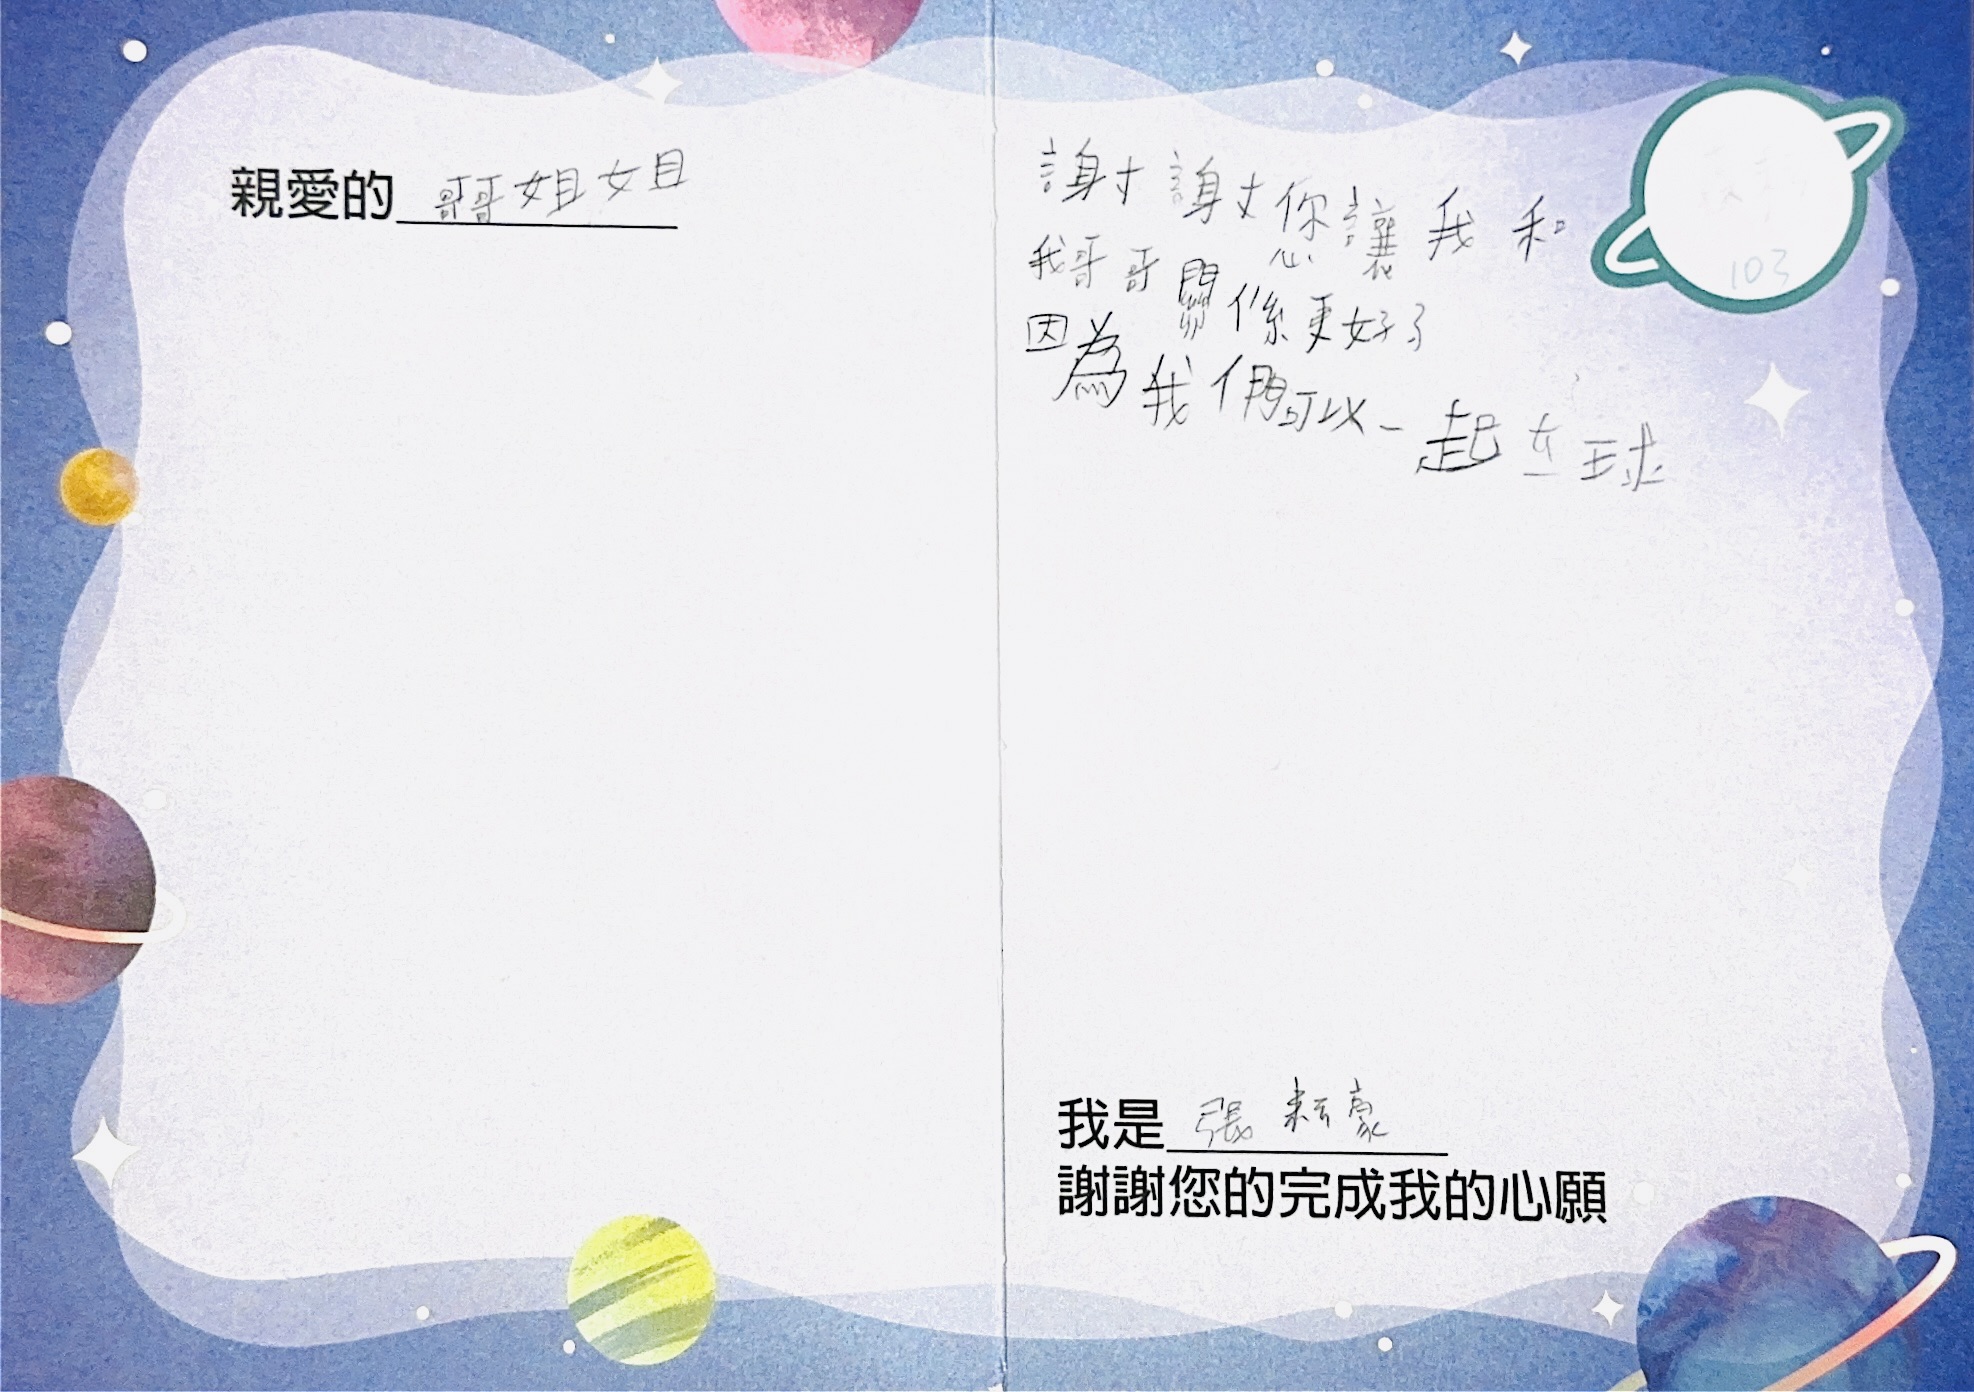 親愛的 哥哥姐姐
謝謝您讓我和
我哥哥關係更好了
因為我們可以一起 球
103
我是 張 豪
謝謝您的完成我的心願